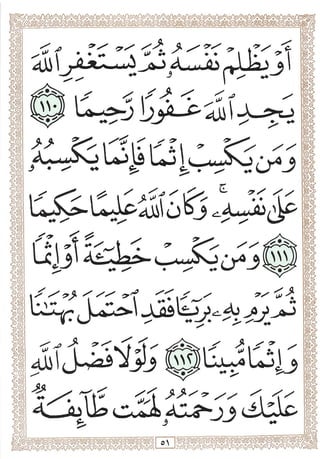 أَوْ يَظْلِمْ نَفْسَهُۥ ثُمَّ يَسْتَغْفِرِ ٱللَّهَ
يَجِدِ ٱللَّهَ غَفُورًا رَّحِيمًا ١١٠
وَمَن يَكْسِبْ إِثْمًا فَإِنَّمَا يَكْسِبُهُۥ
عَلَىٰ نَفْسِهِۦۚ وَكَانَ ٱللَّهُ عَلِيمًا حَكِيمًا
١١١ وَمَن يَكْسِبْ خَطِيٓـَٔةً أَوْ إِثْمًا
ثُمَّ يَرْمِ بِهِۦ بَرِيٓـًٔا فَقَدِ ٱحْتَمَلَ بُهْتَـٰنًا
وَإِثْمًا مُّبِينًا ١١٢ وَلَوْلَا فَضْلُ ٱللَّهِ
عَلَيْكَ وَرَحْمَتُهُۥ لَهَمَّت طَّآئِفَةٌ
٥١